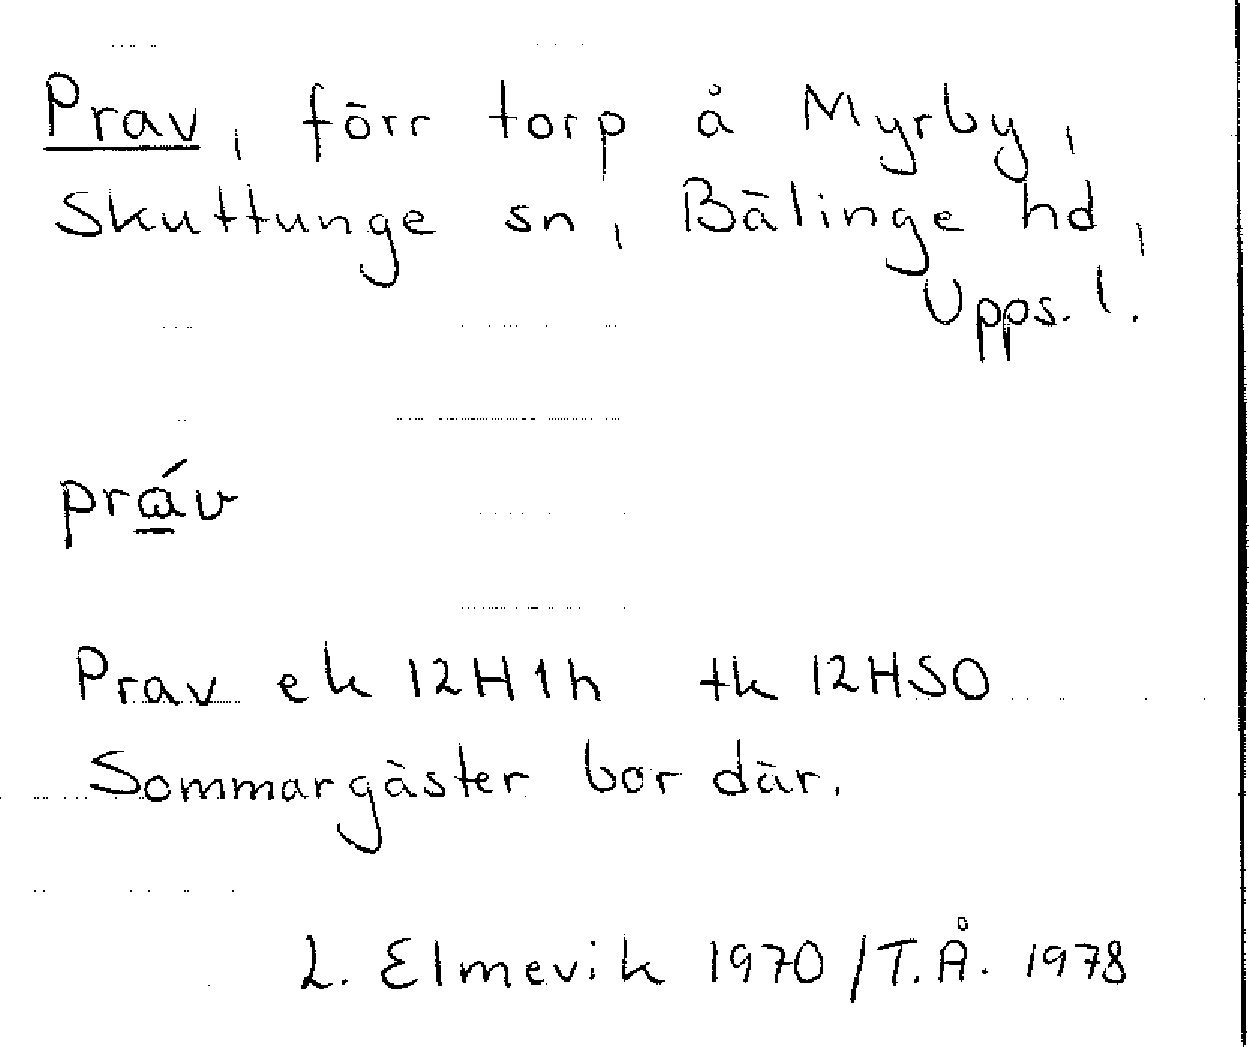 Prav, förr torp å Myrby,
Skuttunge sn, Bälinge hd,
Upps. l.
prά̲v
Prav ek 12H1h tk 12HSO
Sommargäster bor där.
L. Elmevik 1970/T.Å. 1978